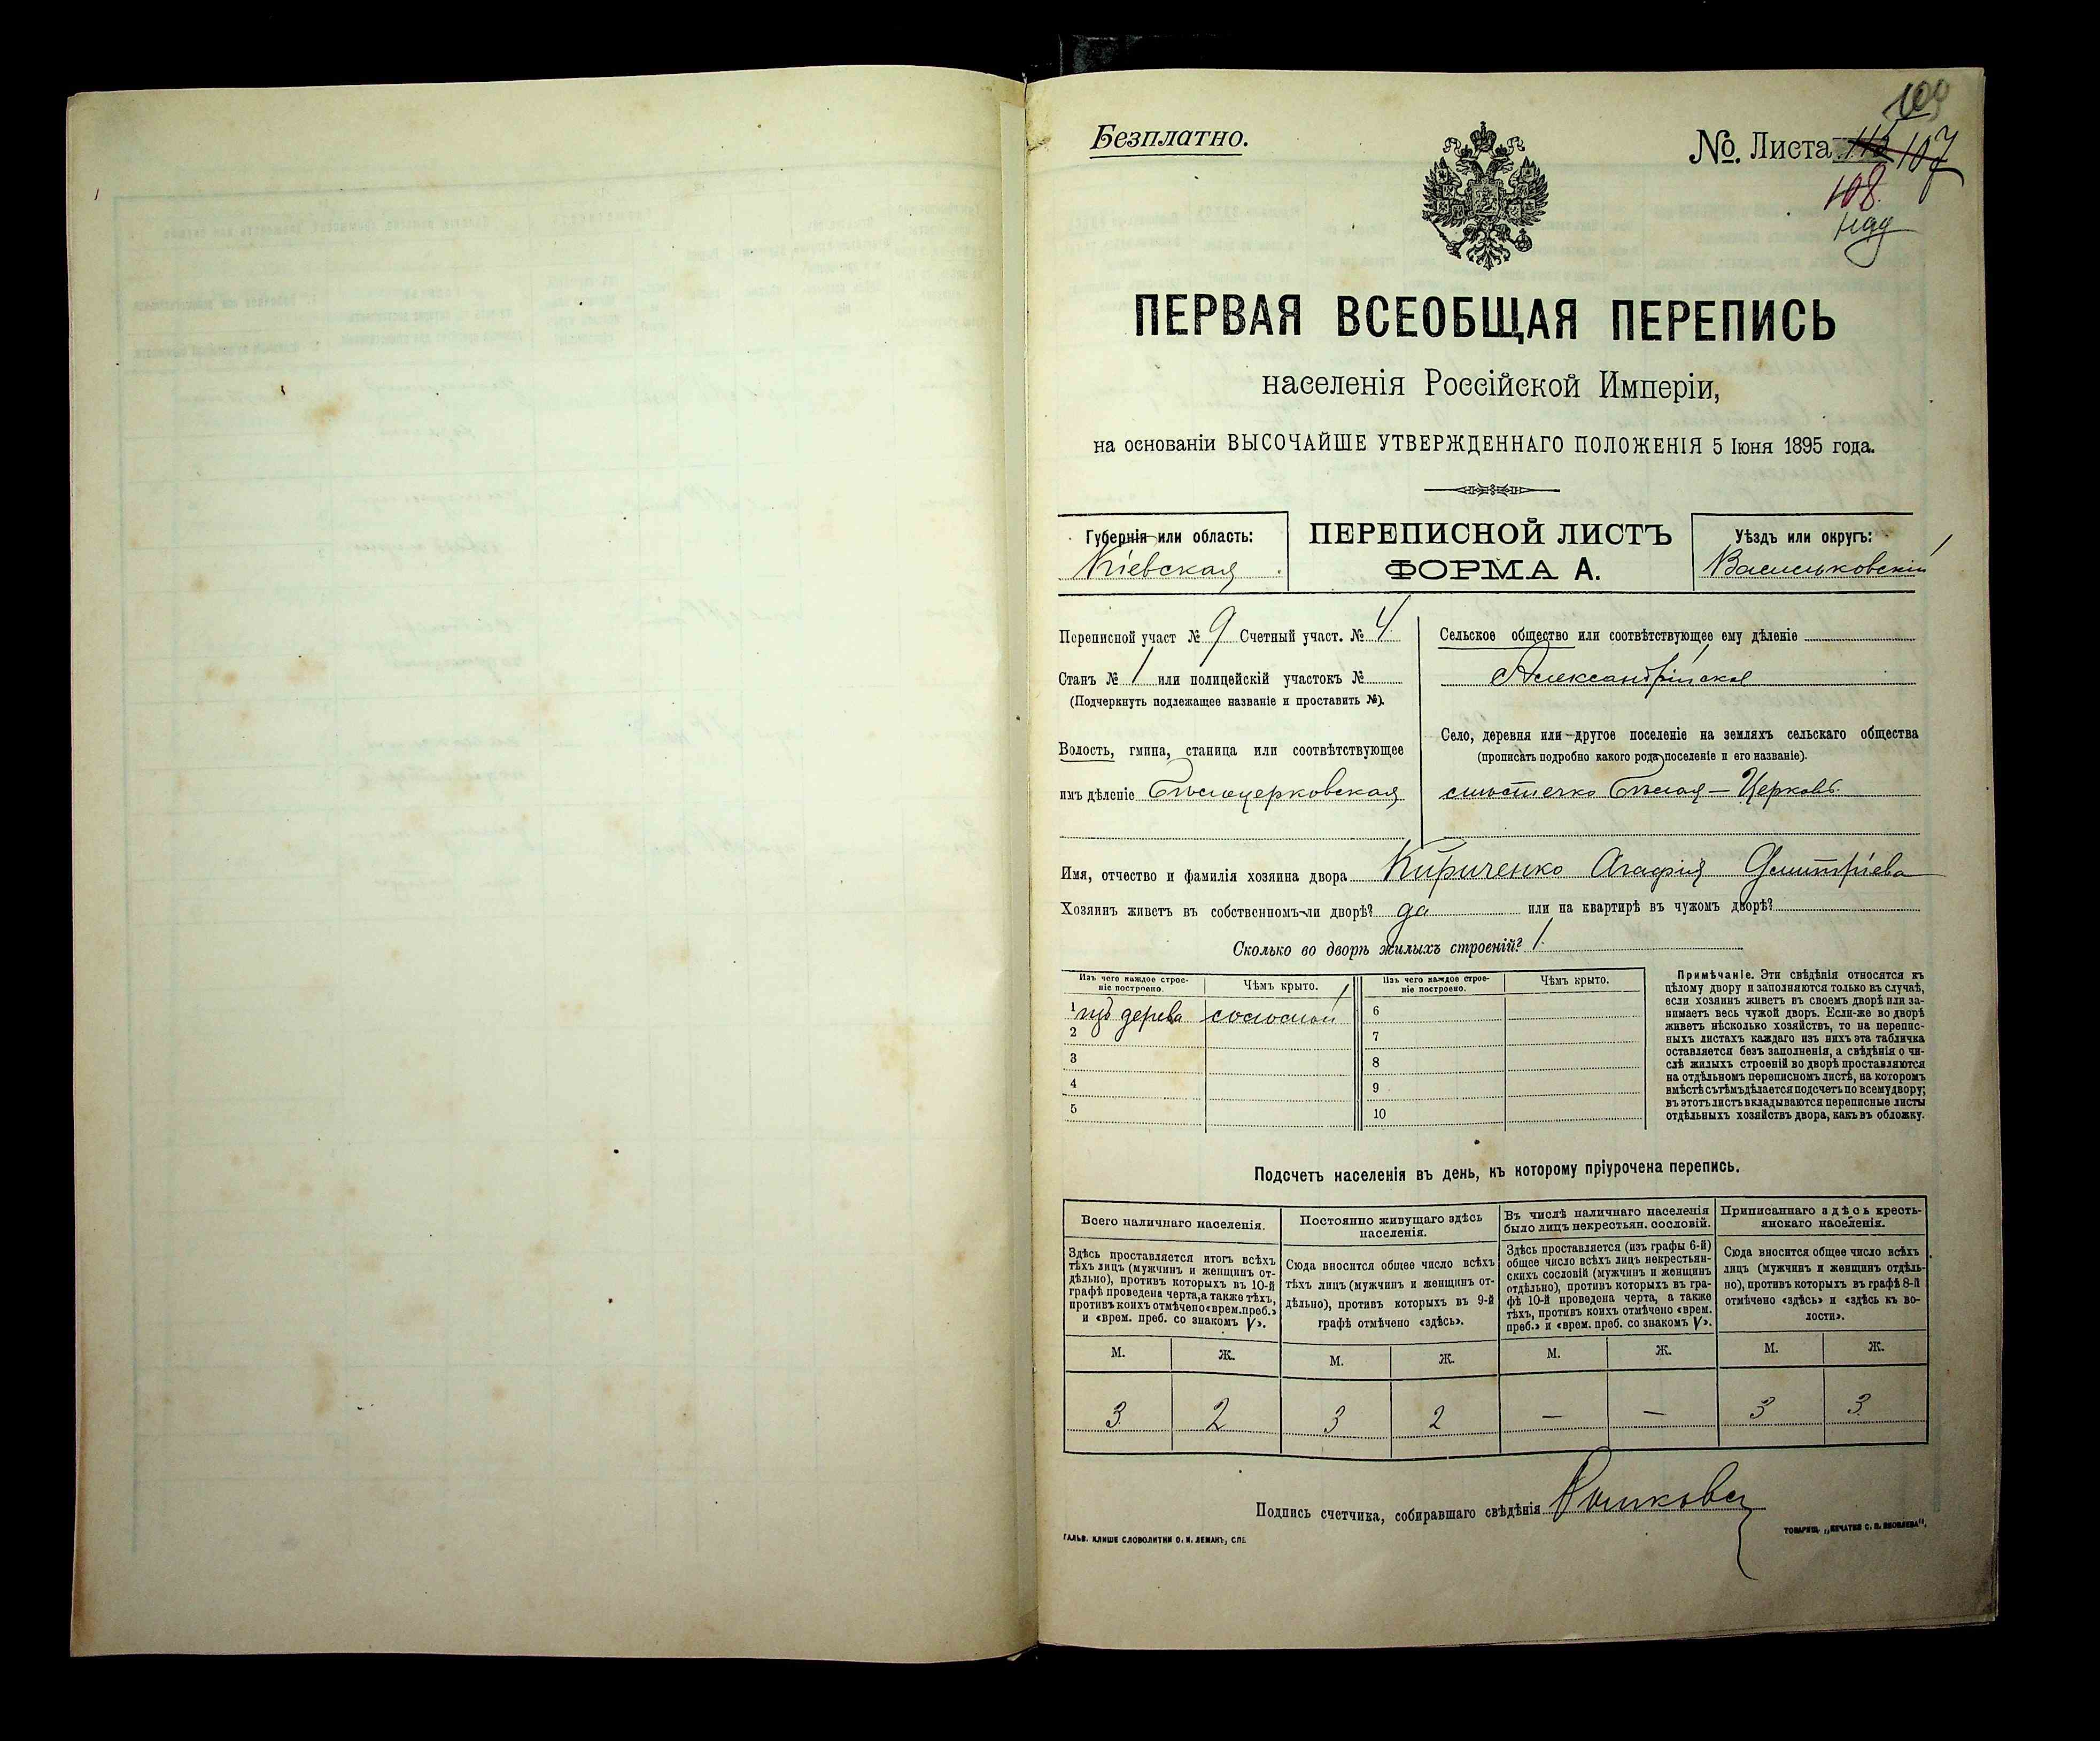 Безплатно.
№. Листа 107
108
над
ПЕРВАЯ ВСЕОБЩАЯ ПЕРЕПИСЬ
населенія Россійской Имперіи,
на основаніи ВЫСОЧАЙШЕ УТВЕРЖДЕННАГО ПОЛОЖЕНІЯ 5 Іюня 1895 года.
Губернія или область:
Кіевская
ПЕРЕПИСНОЙ ЛИСТЪ
ФОРМА А.
Уѣздъ или округъ:
Васильковскій
Переписной участ № 9 Счетный участ. № 4
Станъ № 1 или полицейскій участокъ №
(Подчеркнуть подлежащее названіе и проставить №).
Волость, гмина, станица или соотвѣтствующее
имъ дѣленіе Бѣлоцерковская
Сельское общество или соотвѣтствующее ему дѣленіе
Александрійское
Село, деревня или другое поселеніе на земляхъ сельскаго общества
(прописать подробно какого рода поселеніе и его названіе).
мѣстечко Бѣлая-Церковь
Имя, отчество и фамилія хозяина двора Кириченко Агафія Дмитріева
Хозяинъ живетъ въ собственномъ-ли дворѣ? да или на квартирѣ въ чужомъ дворѣ?
Сколько во дворѣ жилыхъ строеній? 1
Изъ чего каждое строе-
ніе построено.
Чѣмъ крыто.
Изъ чего каждое строе-
ніе построено.
Чѣмъ крыто.
1 изъ дерева соломой 6
2 7
3 8
4 9
5 10
Примѣчаніе. Эти свѣдѣнія относятся къ
цѣлому двору и заполняются только въ случаѣ,
если хозяинъ живетъ въ своемъ дворѣ или за-
нимаетъ весь чужой дворъ. Если-же во дворѣ
живетъ нѣсколько хозяйствъ, то на перепис-
ныхъ листахъ каждаго изъ нихъ эта табличка
оставляется безъ заполненія, а свѣдѣнія о чи-
слѣ жилыхъ строеній во дворѣ проставляются
на отдѣльномъ переписномъ листѣ, на которомъ
вмѣстѣ съ тѣмъ дѣлается подсчетъ по всему двору;
въ этотъ листъ вкладываются переписные листы
отдѣльныхъ хозяйствъ двора, какъ въ обложку.
Подсчетъ населенія въ день, къ которому пріурочена перепись.
Всего наличнаго населенія.
Здѣсь проставляется итогъ всѣхъ
тѣхъ лицъ (мужчинъ и женщинъ от-
дѣльно), противъ которыхъ въ 10-й
графѣ проведена черта, а также тѣхъ,
противъ коихъ отмѣчено «врем. преб.»
и «врем. преб. со знакомъ V».
Постоянно живущаго здѣсь
населенія.
Сюда вносится общее число всѣхъ
тѣхъ лицъ (мужчинъ и женщинъ от-
дѣльно), противъ которыхъ въ 9-й
графѣ отмѣчено «здѣсь».
Въ числѣ наличнаго населенія
было лицъ некрестьян. сословій.
Здѣсь проставляется (изъ графы 6-й)
общее число всѣхъ лицъ некрестьян-
скихъ сословій (мужчинъ и женщинъ
отдѣльно), противъ которыхъ въ гра-
фѣ 10-й проведена черта, а также
тѣхъ, противъ коихъ отмѣчено «врем.
преб.» и «врем. преб. со знакомъ V».
Приписаннаго здѣсь кресть-
янскаго населенія.
Сюда вносится общее число всѣхъ
лицъ (мужчинъ и женщинъ отдѣль-
но), противъ которыхъ въ графѣ 8-й
отмѣчено «здѣсь» и «здѣсь къ во-
лости».
М. Ж. М. Ж. М. Ж. М. Ж.
3 2 3 2 — — 3 3
Подпись счетчика, собиравшаго свѣдѣнія
ГАЛЬВ. КЛИШЕ СЛОВОЛИТНИ О. И. ЛЕМАНЪ, СПБ.
ТОВАРИЩ. „ПЕЧАТНЯ С. П. ЯКОВЛЕВА“.